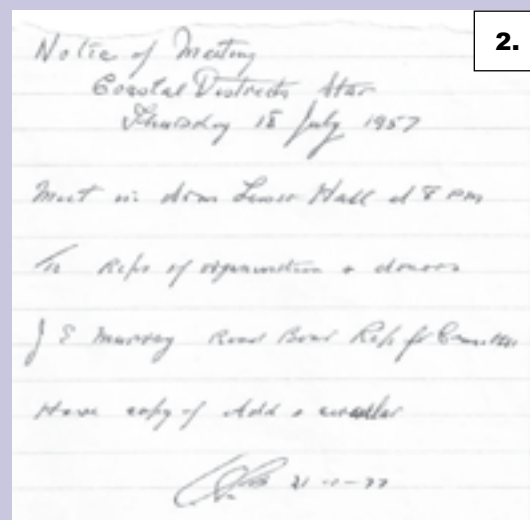 2.
Notice of Meeting
Coastal Districts Star
Thursday 18 July 1957
Meet in Lesser Hall at 8 pm
Reps of organisation & donors
J E Murray Road Board Rep
Have copy of Add &
21-11-77